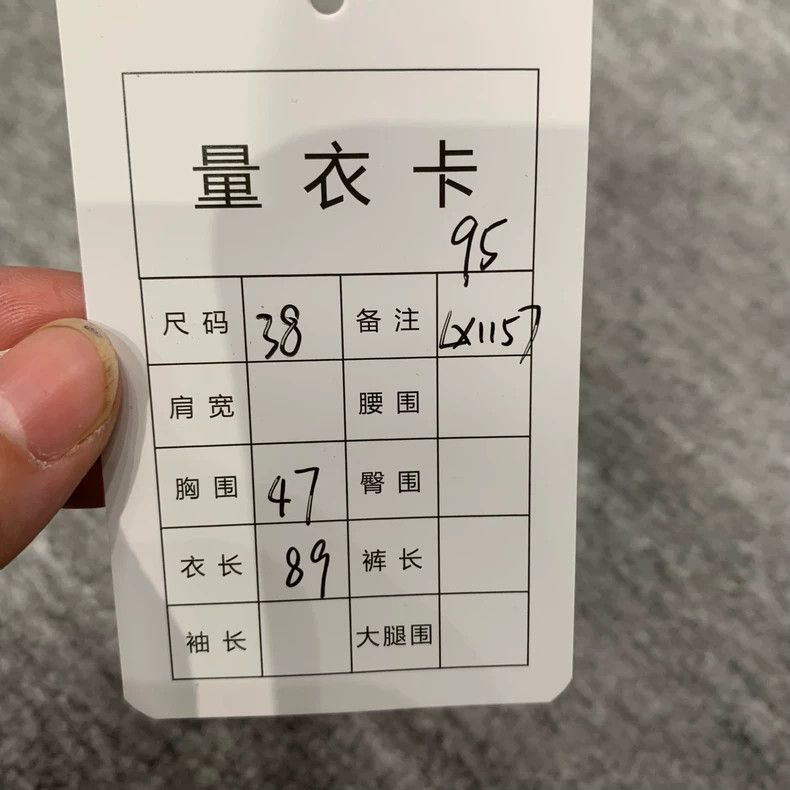 量衣卡
95
尺码 38 备注 LX1157
肩宽 腰围
胸围 47 臀围
衣长 89 裤长
袖长 大腿围